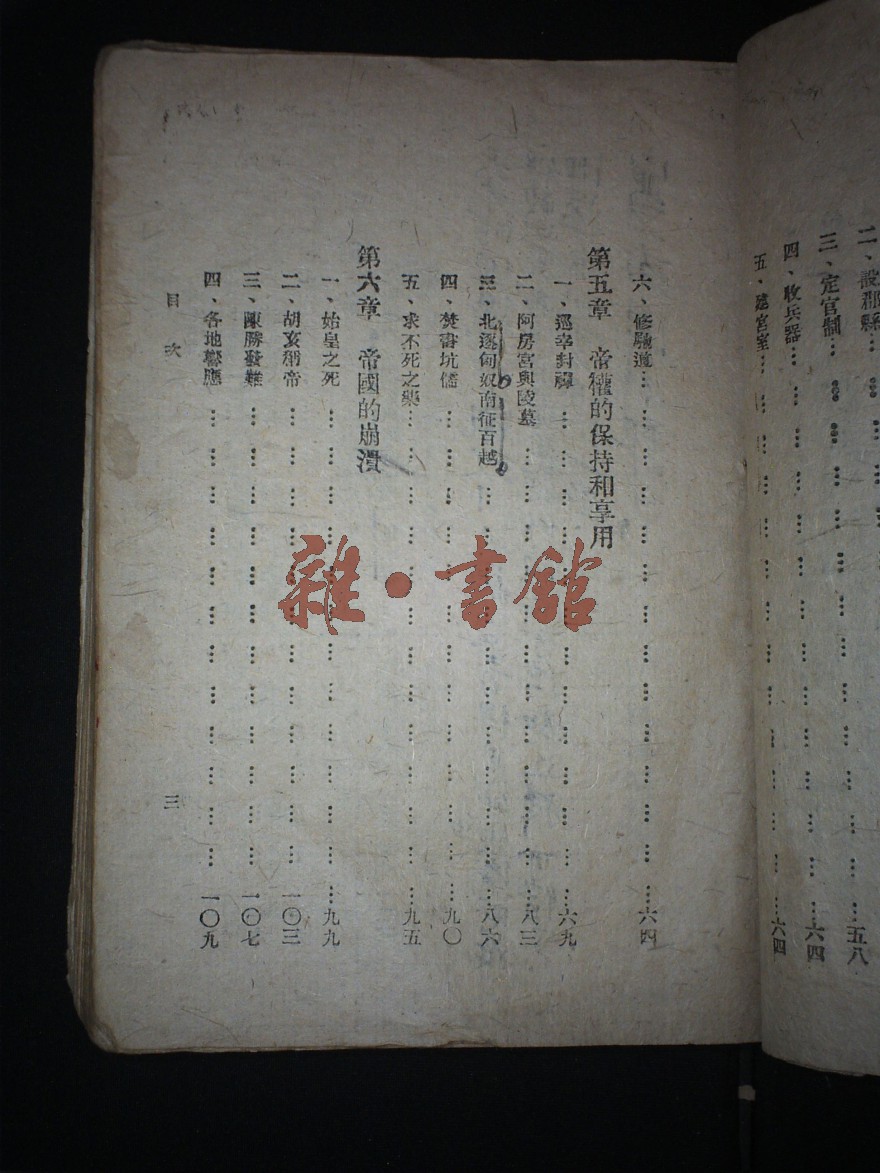 二、設郡縣… … … 五八
三、定官制… … … 六四
四、收兵器… … … 六四
五、建宮室… … … 六四
六、修馳道… … … 六四
第五章 帝權的保持和享用
一、巡幸封禪 … … … 六九
二、阿房宮與陵墓 … … … 八三
三、北逐匈奴南征百越 … … … 八六
四、焚書坑儒 … … … 九〇
五、求不死之藥… … … 九五
第六章 帝國的崩潰
一、始皇之死 … … … 九九
二、胡亥稱帝 … … … 一〇三
三、陳勝發難 … … … 一〇七
四、各地響應 … … … 一〇九
目次
三
雜·書館